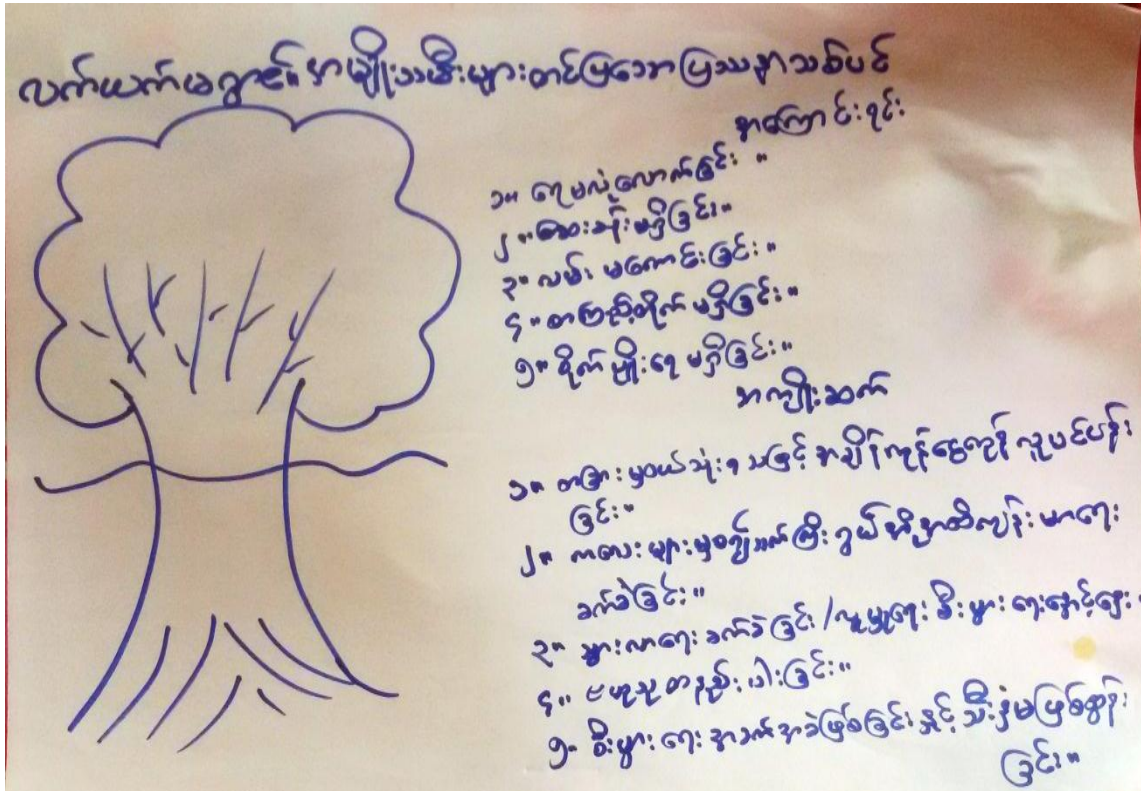 လက်ယက်မကွာ၏ အမျိုးသမီးများတင်ပြသော ပြဿနာသစ်ပင်
အကြောင်းရင်း
၁။ ရေမလုံလောက်ခြင်း။
၂။ ဆေးခန်းမရှိခြင်း။
၃။ လမ်းမကောင်းခြင်း။
၄။ စာကြည့်တိုက်မရှိခြင်း။
၅။ စိုက်ပျိုးရေမရှိခြင်း။
အကျိုးဆက်
၁။ တခြားမှဝယ်သုံးရသဖြင့် အချိန်ကုန်ငွေကုန်လူပင်ပန်း
ခြင်း။
၂။ ကလေးများမှစ၍သက်ကြီးရွယ်အို့အထိကျန်းမာရေး
ခက်ခဲခြင်း။
၃။ သွားလာရေးခက်ခဲခြင်း/လူမှုရေး စီးပွားရေးနှောင့်နှေး။
၄။ ဗဟုသုတနည်းပါးခြင်း။
၅။ စီးပွားရေးအခက်အခဲဖြစ်ခြင်းနှင့် သီးနှံမဖြစ်ထွန်း
ခြင်း။